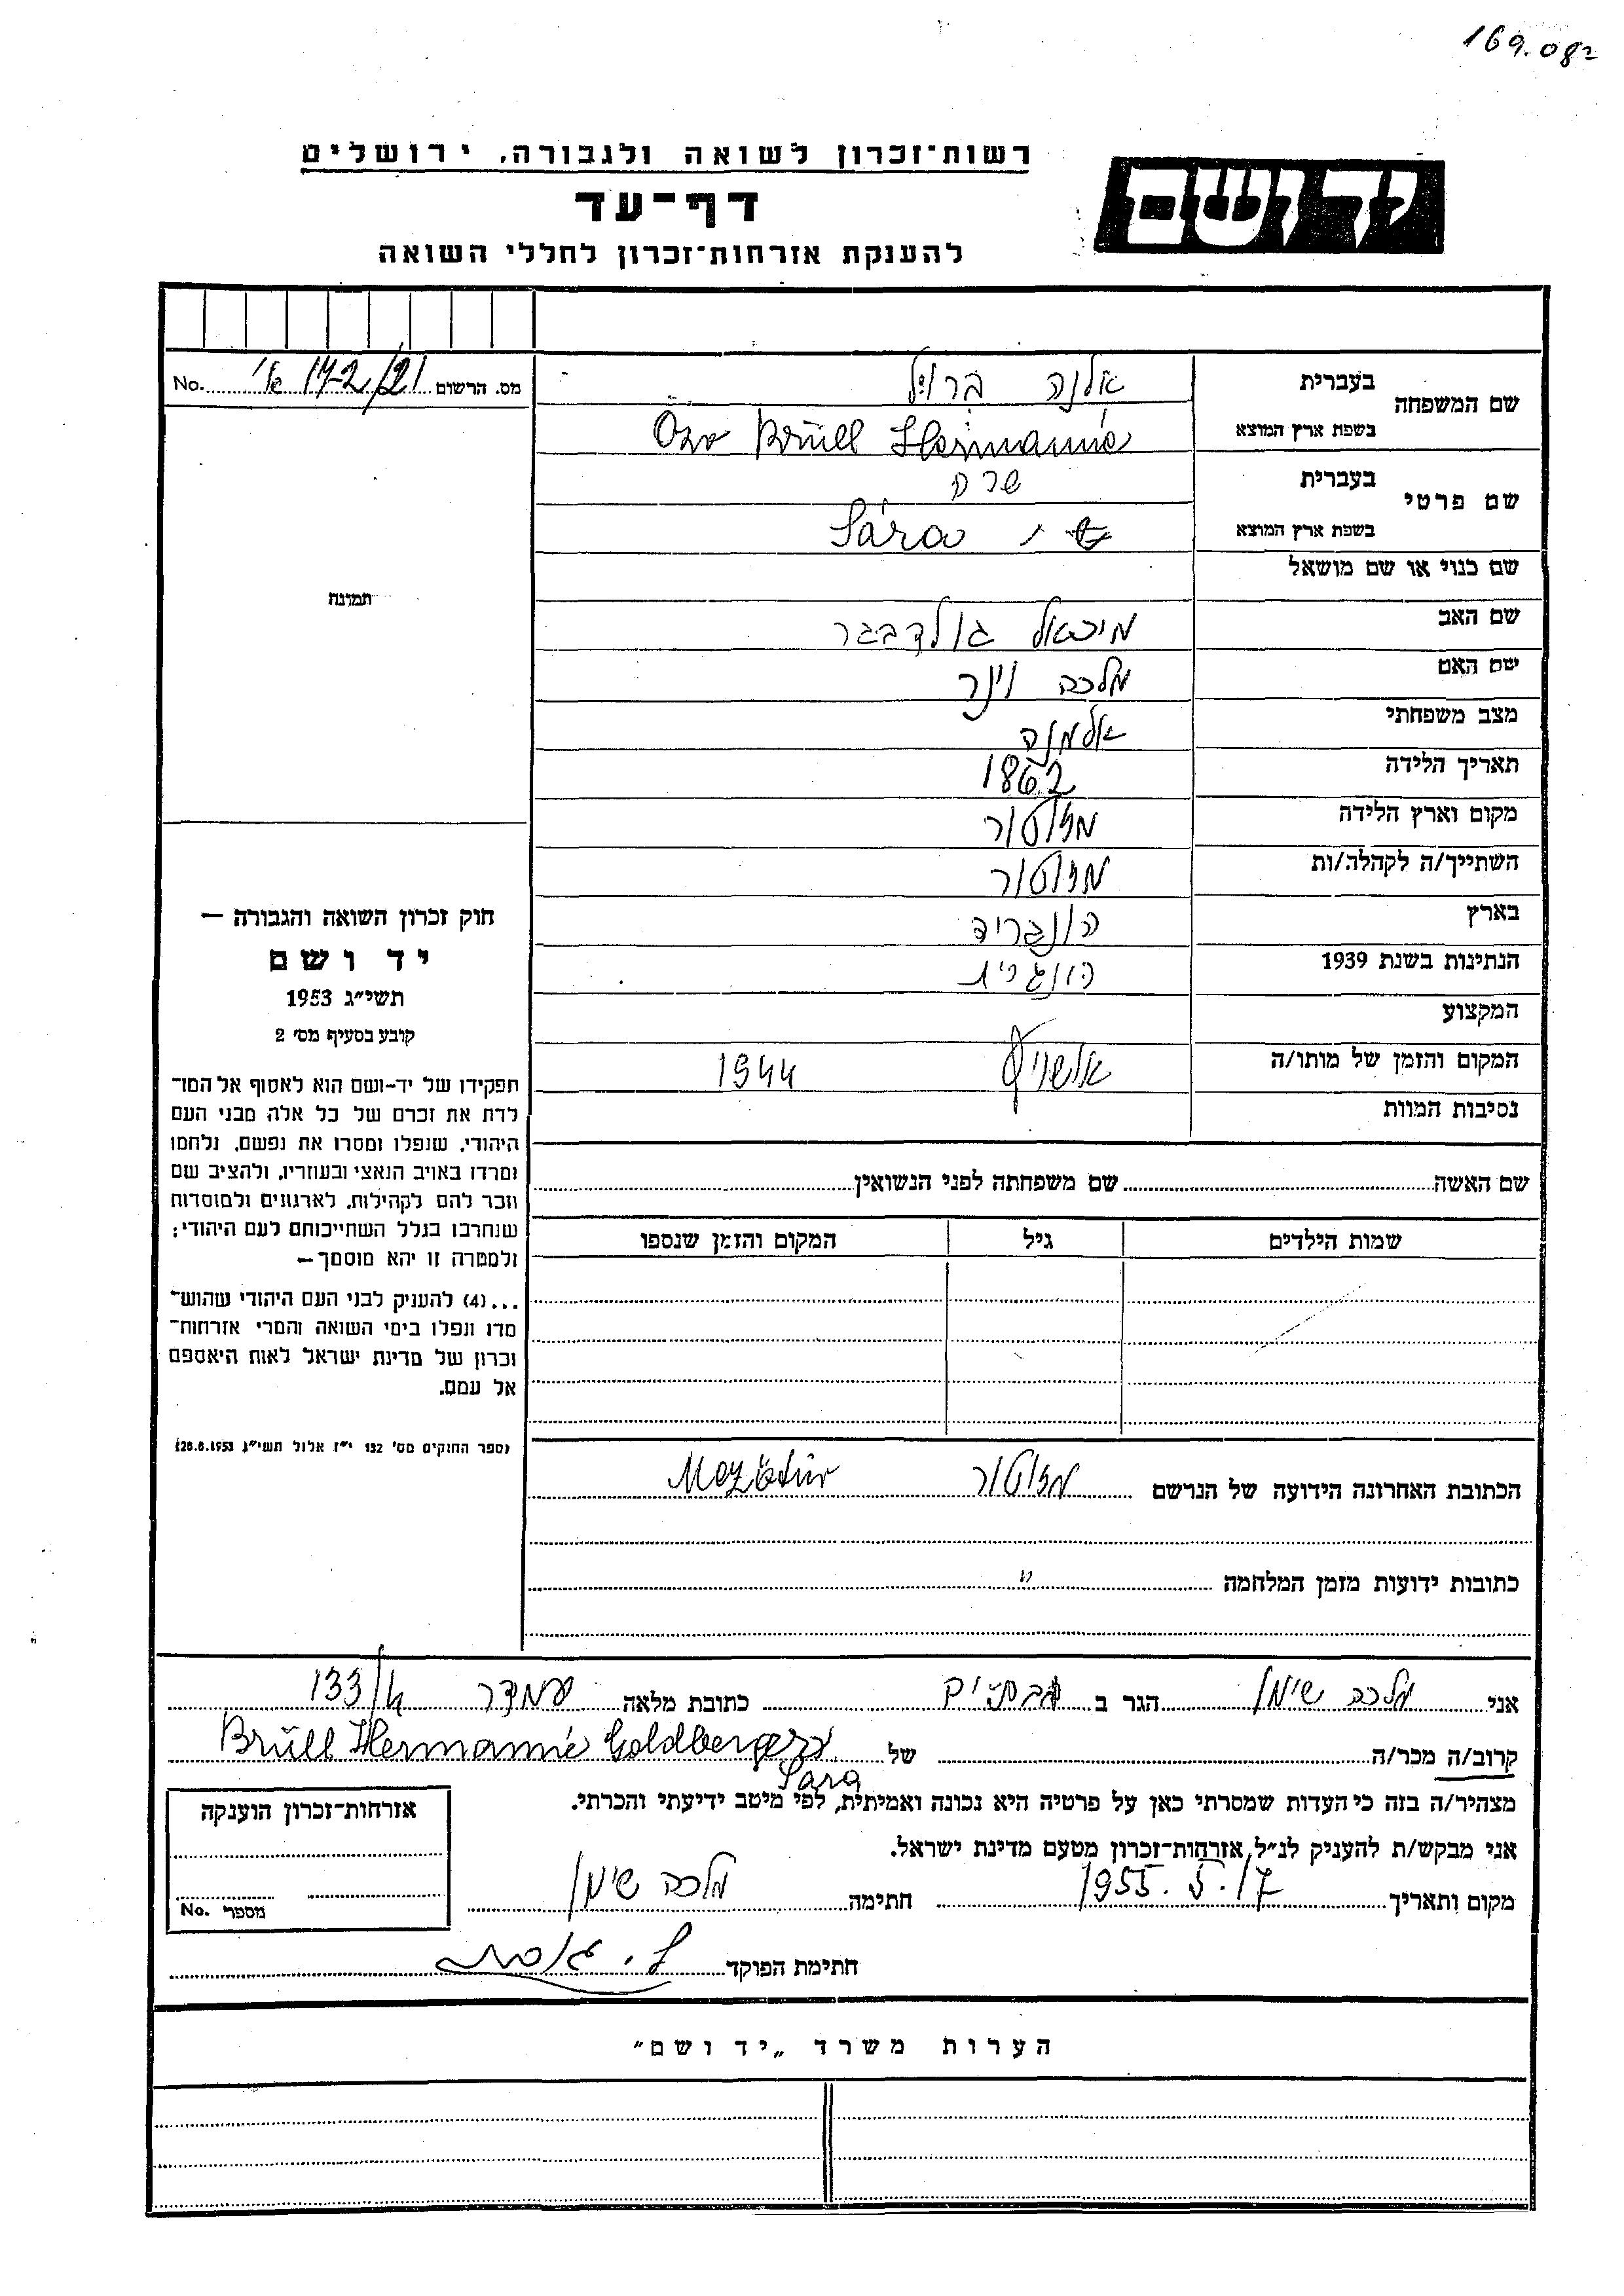 169.082
רשות־זכרון לשואה ולגבורה, ירושלים
יד ושם
דף־עד
להענקת אזרחות־זכרון לחללי השואה
מס. הרשום 172/21 No.
שם המשפחה
בעברית
ברויל
בשפת ארץ המוצא
Özv Brüll Hermanné
שם פרטי
בעברית
שרה
בשפת ארץ המוצא
Sára
שם כנוי או שם מושאל
שם האב מיכאל גולדבגר
שם האם מלכה וינר
מצב משפחתי אלמנה
תאריך הלידה 1862
מקום וארץ הלידה מזוטור
השתייך/ה לקהלה/ות מזוטור
בארץ הונגריה
הנתינות בשנת 1939 הונגרית
המקצוע
המקום והזמן של מותו/ה אושויץ 1944
נסיבות המוות
שם האשה שם משפחתה לפני הנשואין
שמות הילדים גיל המקום והזמן שנספו
הכתובת האחרונה הידועה של הנרשם מזוטור Mezötúr
כתובות ידועות מזמן המלחמה "
תמונה
חוק זכרון השואה והגבורה —
יד ושם
תשי״ג 1953
קובע בסעיף מס׳ 2
תפקידו של יד-ושם הוא לאסוף אל המו־
לדת את זכרם של כל אלה מבני העם
היהודי, שנפלו ומסרו את נפשם, נלחמו
ומרדו באויב הנאצי ובעוזריו, ולהציב שם
וזכר להם לקהילות, לארגונים ולמוסדות
שנחרבו בגלל השתייכותם לעם היהודי;
ולמטרה זו יהא מוסמך —
...(4) להעניק לבני העם היהודי שהוש־
מדו ונפלו בימי השואה והמרי אזרחות־
זכרון של מדינת ישראל לאות היאספם
אל עמם.
(ספר החוקים מס׳ 132 י״ז אלול תשי״ג 28.8.1953)
אני מלכה שימון הגר ב גבתיים כתובת מלאה עמידר 133/4
קרוב/ה מכר/ה של Brüll Hermanné Goldberger
Sara
מצהיר/ה בזה כי העדות שמסרתי כאן על פרטיה היא נכונה ואמיתית, לפי מיטב ידיעתי והכרתי.
אני מבקש/ת להעניק לנ״ל, אזרחות־זכרון מטעם מדינת ישראל.
מקום ותאריך 1955.5.17 חתימה מלכה שימון
חתימת הפוקד
אזרחות־זכרון הוענקה
מספר No.
הערות משרד „יד ושם״